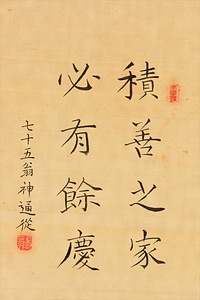 積善之家
必有餘慶
七十五翁神通従